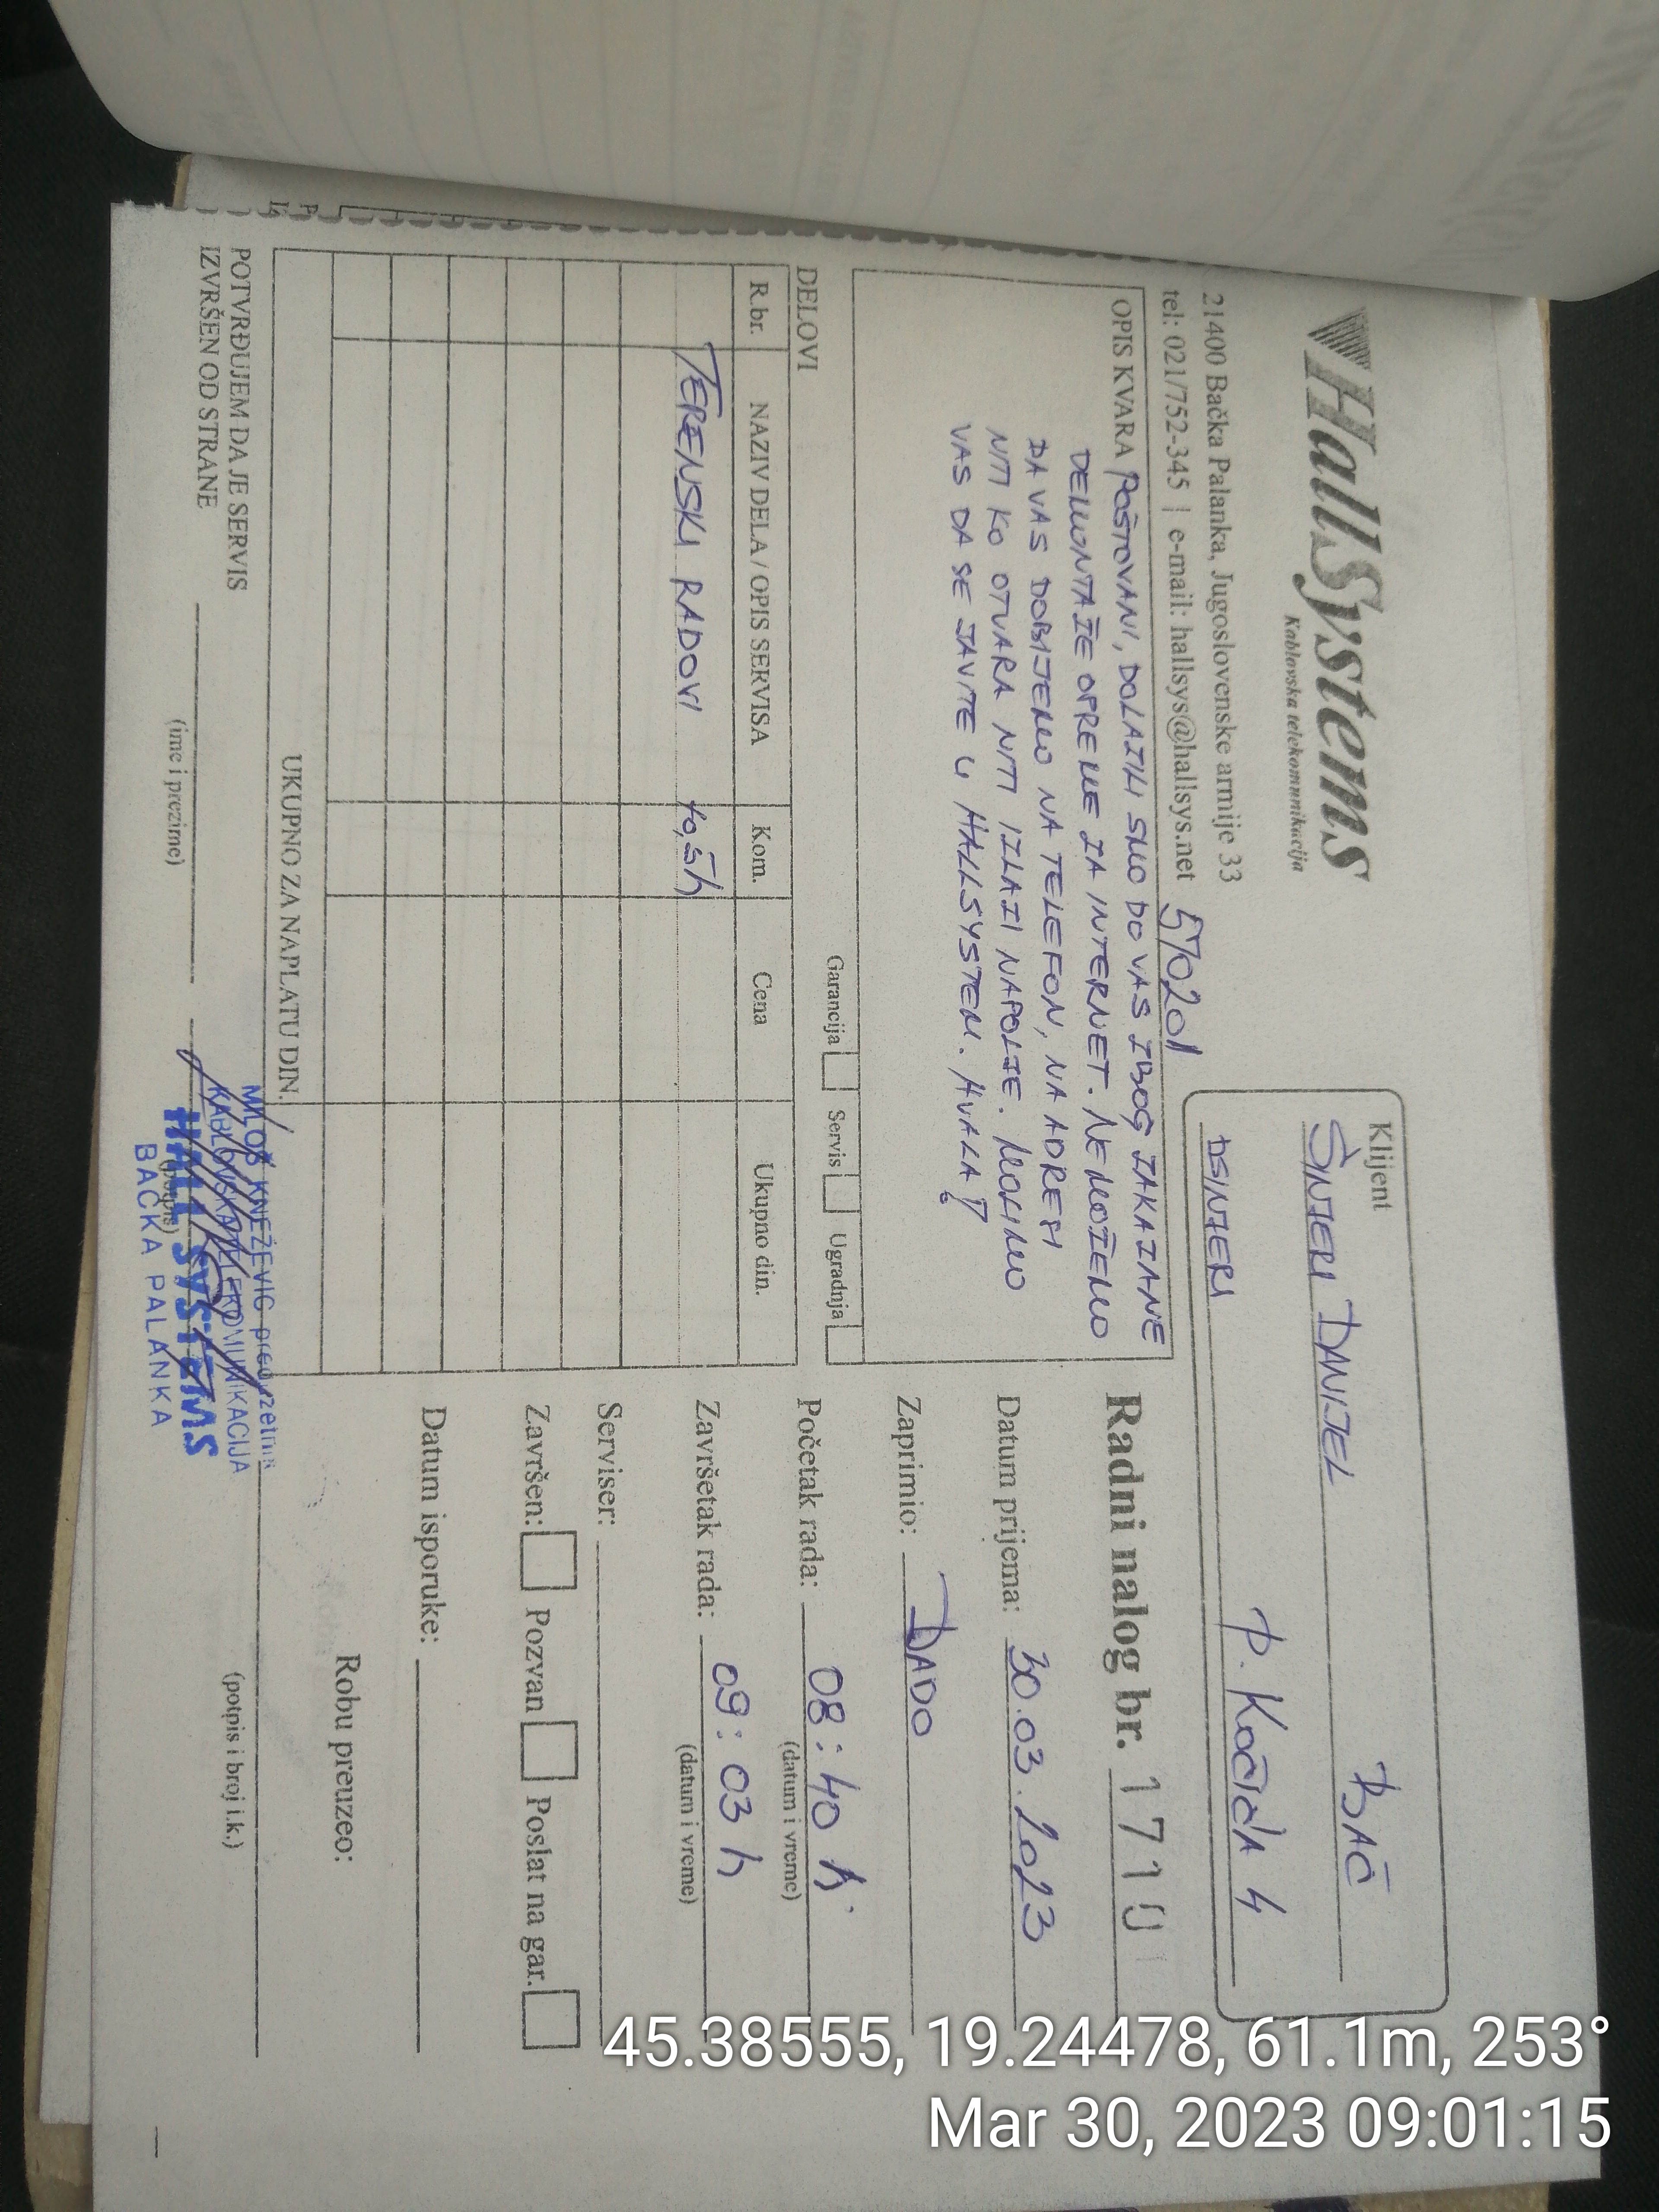 HallSystems
Kablovska telekomunikacija
21400 Bačka Palanka, Jugoslovenske armije 33
tel: 021/752-345 | e-mail: hallsys@hallsys.net
570201
Klijent
ŠINJERI DANIJEL BAČ
DSINJERI P. KOČIĆA 4
OPIS KVARA POŠTOVANI, DOLAZILI SMO DO VAS ZBOG ZAKAZANE
DEMONTAŽE OPREME ZA INTERNET. NE MOŽEMO
DA VAS DOBIJEMO NA TELEFON, NA ADRESI
NITI KO OTVARA NITI IZLAZI NAPOLJE. MOLIMO
VAS DA SE JAVITE U HALLSYSTEM. HVALA!
Garancija Servis Ugradnja
DELOVI
R.br. NAZIV DELA / OPIS SERVISA Kom. Cena Ukupno din.
TERENSKI RADOVI 0,5h
UKUPNO ZA NAPLATU DIN.
POTVRĐUJEM DA JE SERVIS
IZVRŠEN OD STRANE
(ime i prezime)
(potpis)
MILOŠ KNEŽEVIĆ preduzetnik
KABLOVSKA TELEKOMUNIKACIJA
HALL SYSTEMS
BAČKA PALANKA
Radni nalog br. 1710
Datum prijema: 30.03.2023
Zaprimio: DADO
Početak rada: 08:40 h
(datum i vreme)
Završetak rada: 09:03 h
(datum i vreme)
Serviser:
Završen: Pozvan Poslat na gar.
Datum isporuke:
Robu preuzeo:
(potpis i broj i.k.)
45.38555, 19.24478, 61.1m, 253°
Mar 30, 2023 09:01:15